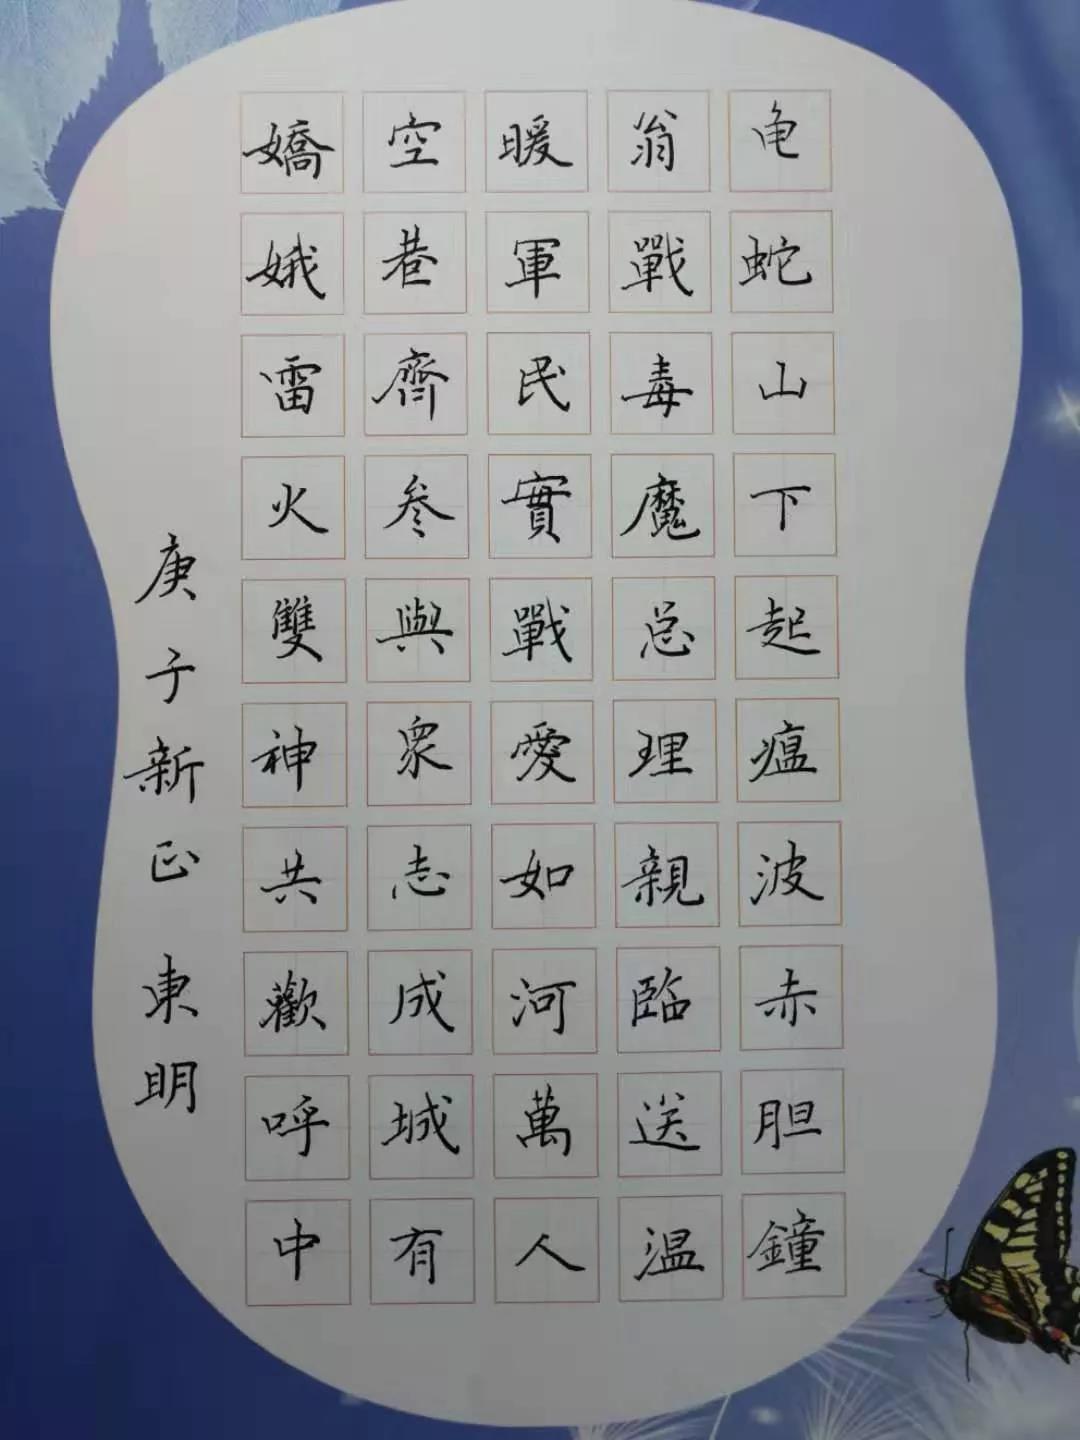 龟蛇山下起瘟波赤胆鐘
翁戰毒魔总理親臨送温
暖軍民實戰愛如河萬人
空巷齊参與衆志成城有
嬌娥雷火雙神共歡呼中
庚子新正東明